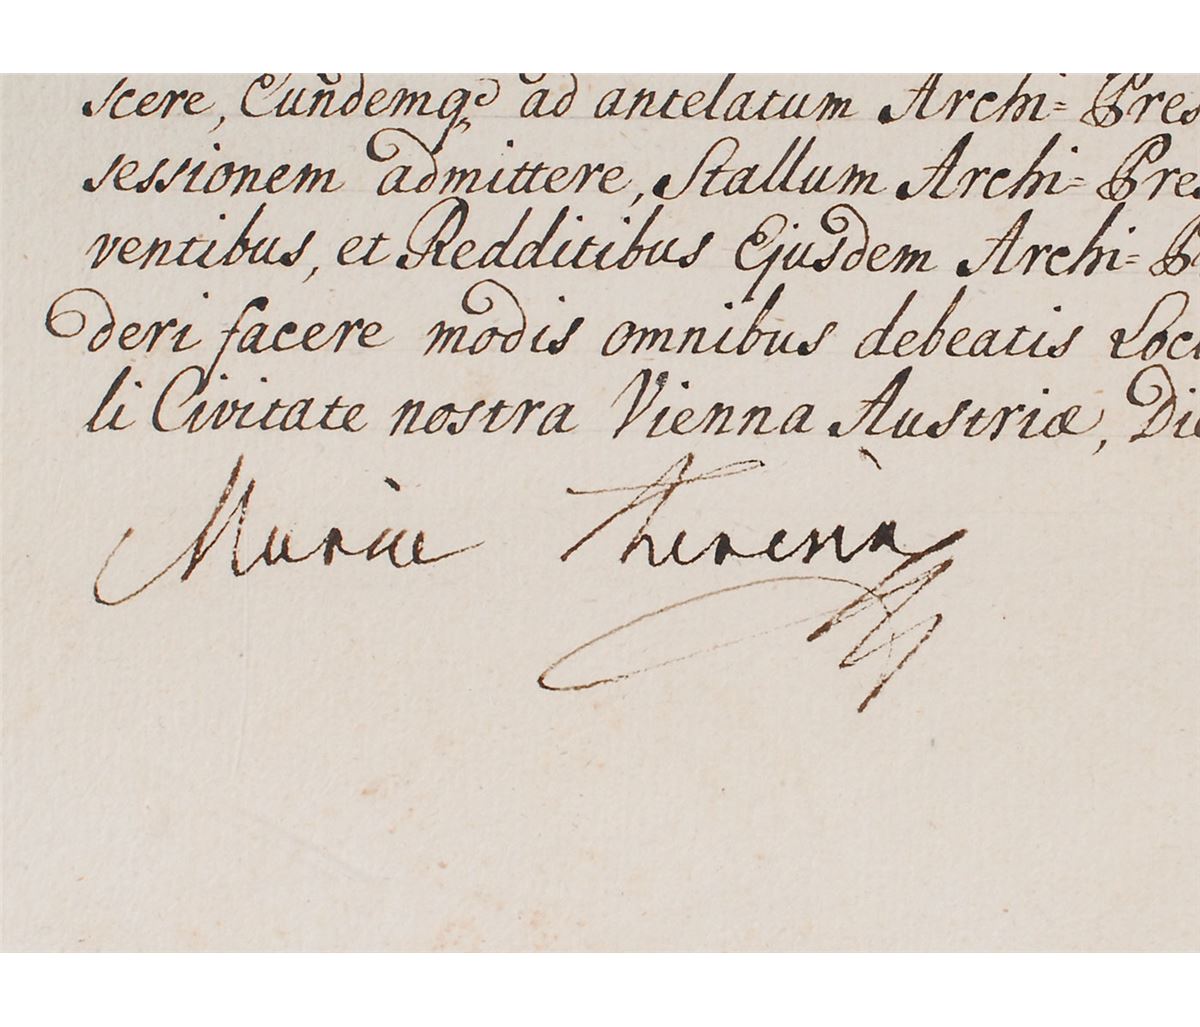 scere, Eundemq̃ ad antelatum Archi= Pres
sessionem admittere, Stallum Archi= Pres
ventibus, et Redditibus Ejusdem Archi= P
deri facere modis omnibus debeatis Loc
li Civitate nostra Vienna Austriæ, Die
Maria Theresia